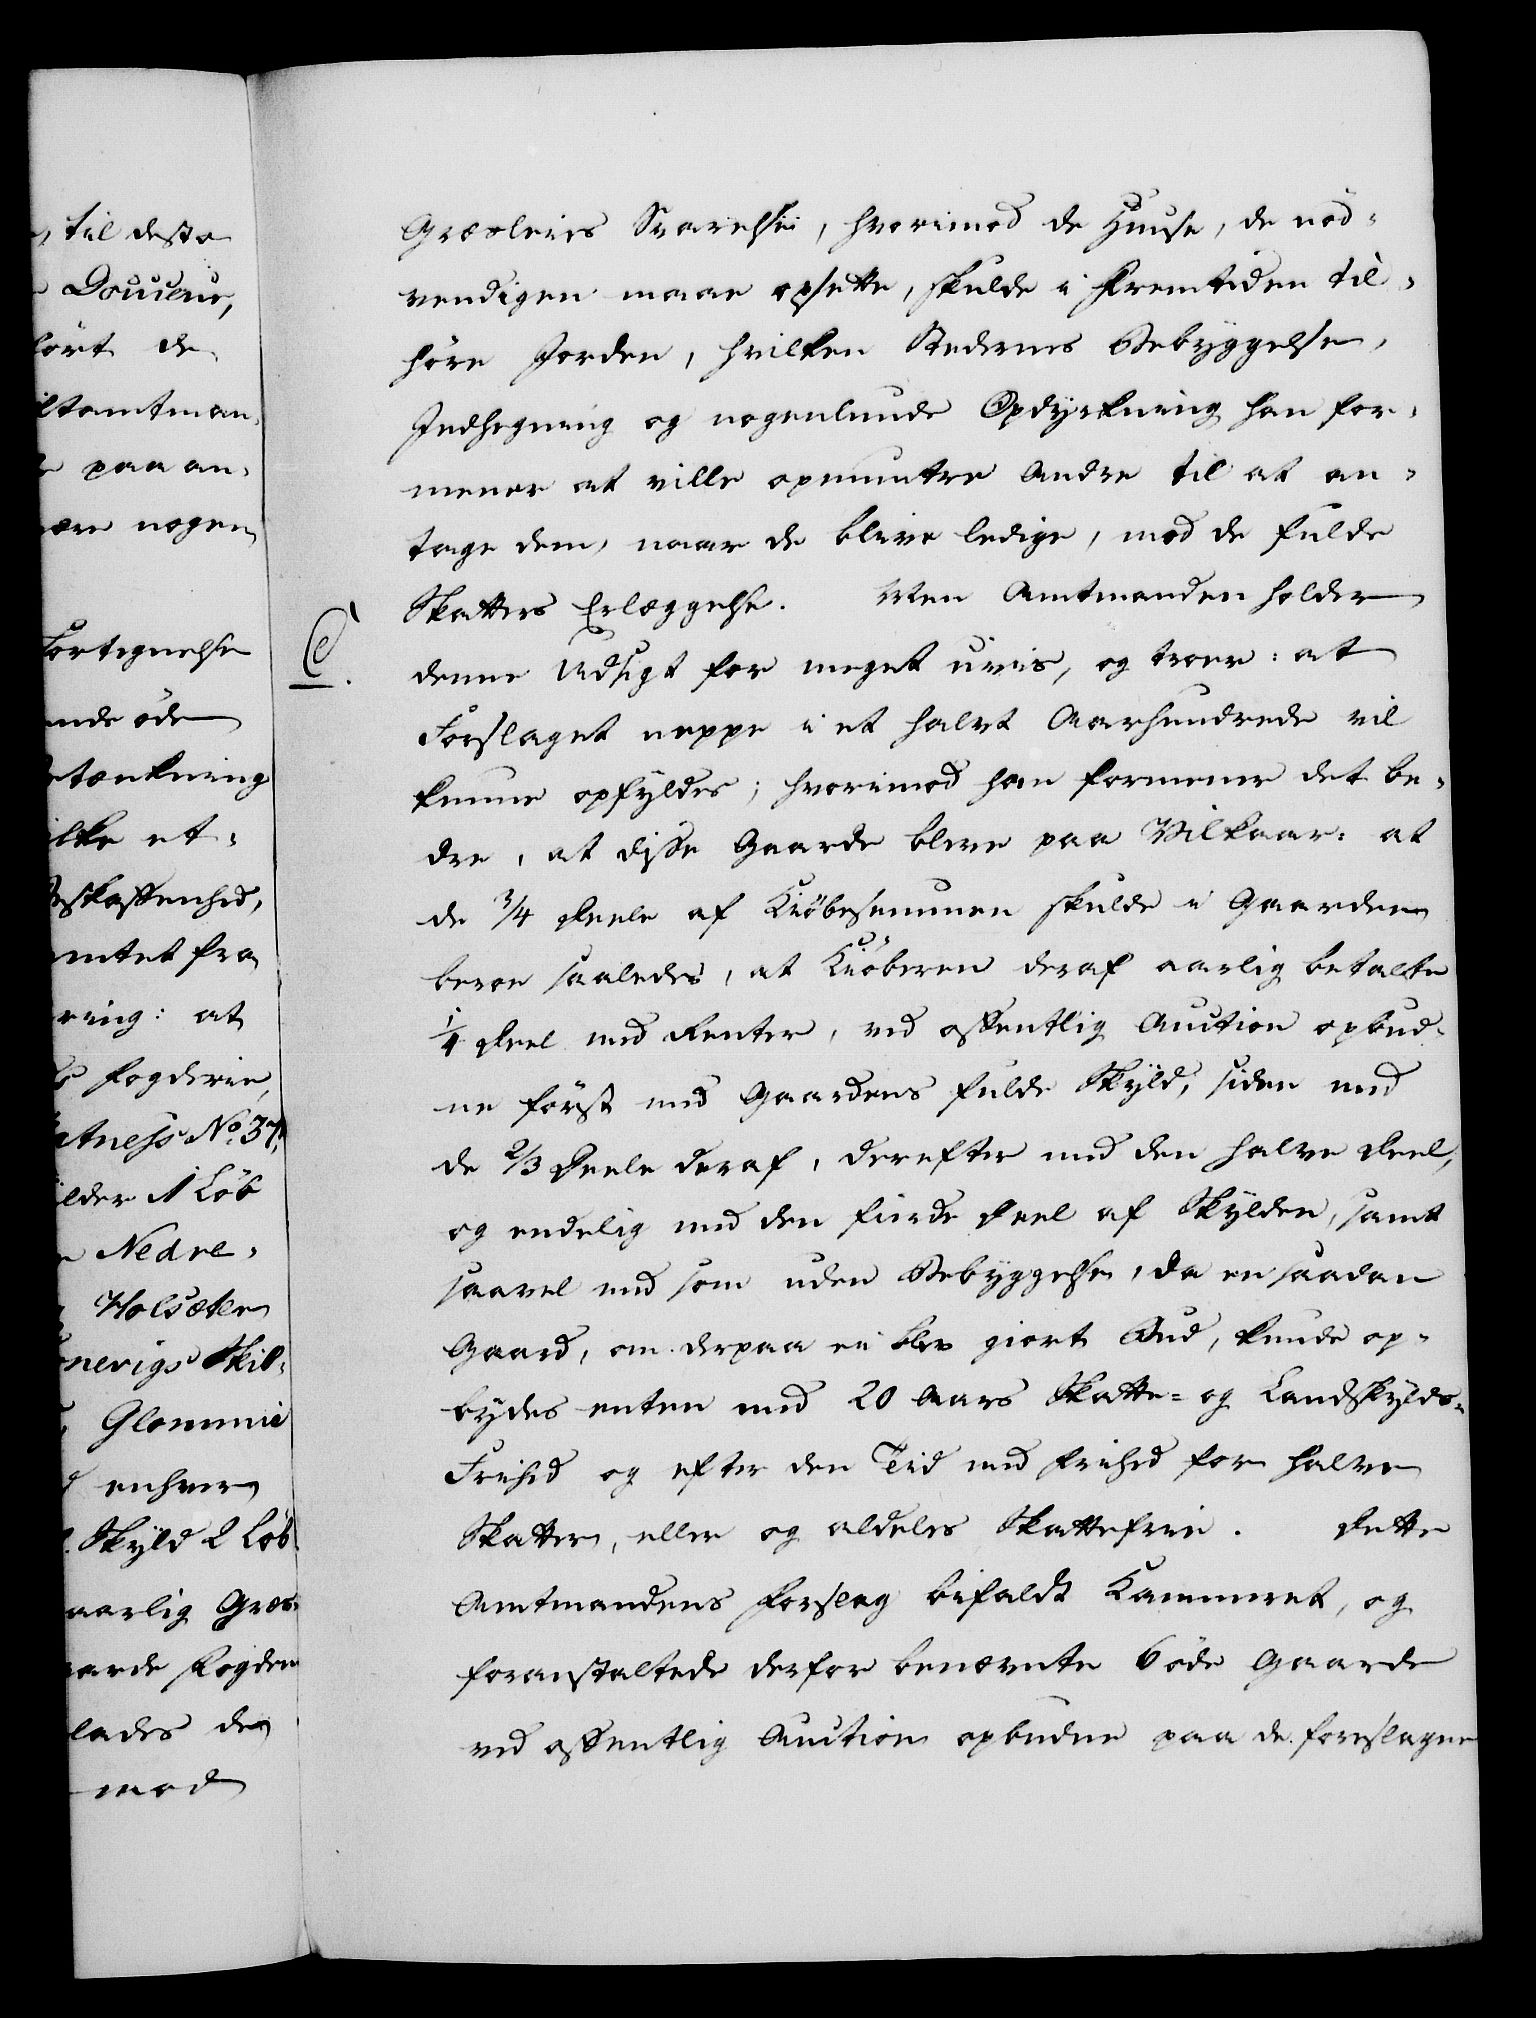 til desto
Douceur,
ført de
iltamtman¬
paa an¬
være nogen
Fortegnelse
ende øde
Betænkning
ilke et¬
Beskaffenhed,
Amtet fra
ring: at
Fogderie,
atness No. 37,
ilder 1 Løb
Nedre¬
Holsæter
nevigs Skil¬
Glommie
enhver
Skyld 2 Løb
aarlig Græs¬
aarde Fogden
lades de
mod
Græsleies Svarelse, hvorimod de Huuse, de nød¬
vendigen maae opsætte, skulde i Fremtiden til¬
høre Jorden, hvilken Stedernes Bebyggelse,
Indhegning og nogenlunde Opdyrkning han for¬
mener at ville opmuntre Andre til at an¬
tage dem, naar de blive ledige, mod de fulde
Skatters Erlæggelse. Men Amtmanden holder
C. denne Udsigt for meget uvis, og troer: at
Forslaget neppe i et halvt Aarhundrede vil
kunne opfyldes; hvorimod han formener det be¬
dre, at disse Gaarde bleve paa Vilkaar: at
de 3/4 Deele af Kiøbesummen skulde i Gaarden
beroe saaledes, at Kiøberen deraf aarlig betalte
1/4 Deel med Renter, ved offentlig Auction opbud¬
ne først med Gaardens fulde Skyld, siden med
de 2/3 Deele deraf, derefter med den halve Deel,
og endelig med den fierde Deel af Skylden, samt
saavel med som uden Bebyggelse, da en saadan
Gaard, om derpaa ei blev giort Bud, kunde op¬
bydes enten med 20 Aars Skatte- og Landskylds¬
Frihed og efter den Tid med Frihed for halve
Skatter, eller og aldeles Skattefrie. Dette
Amtmandens Forslag bifaldt Kammeret, og
foranstaltede derfor benævnte 6 øde Gaarde
ved offentlig Auction opbudne paa de foreslagne